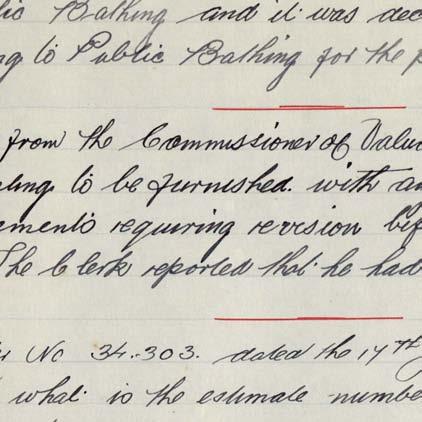 lic Bathing and it was dec
ng to Public Bathing for the p
from the Commissioner of Valu
ling to be furnished with an
ements requiring revision bef
The Clerk reported that he had
No 34.303. dated the 17th
what is the estimate numbe